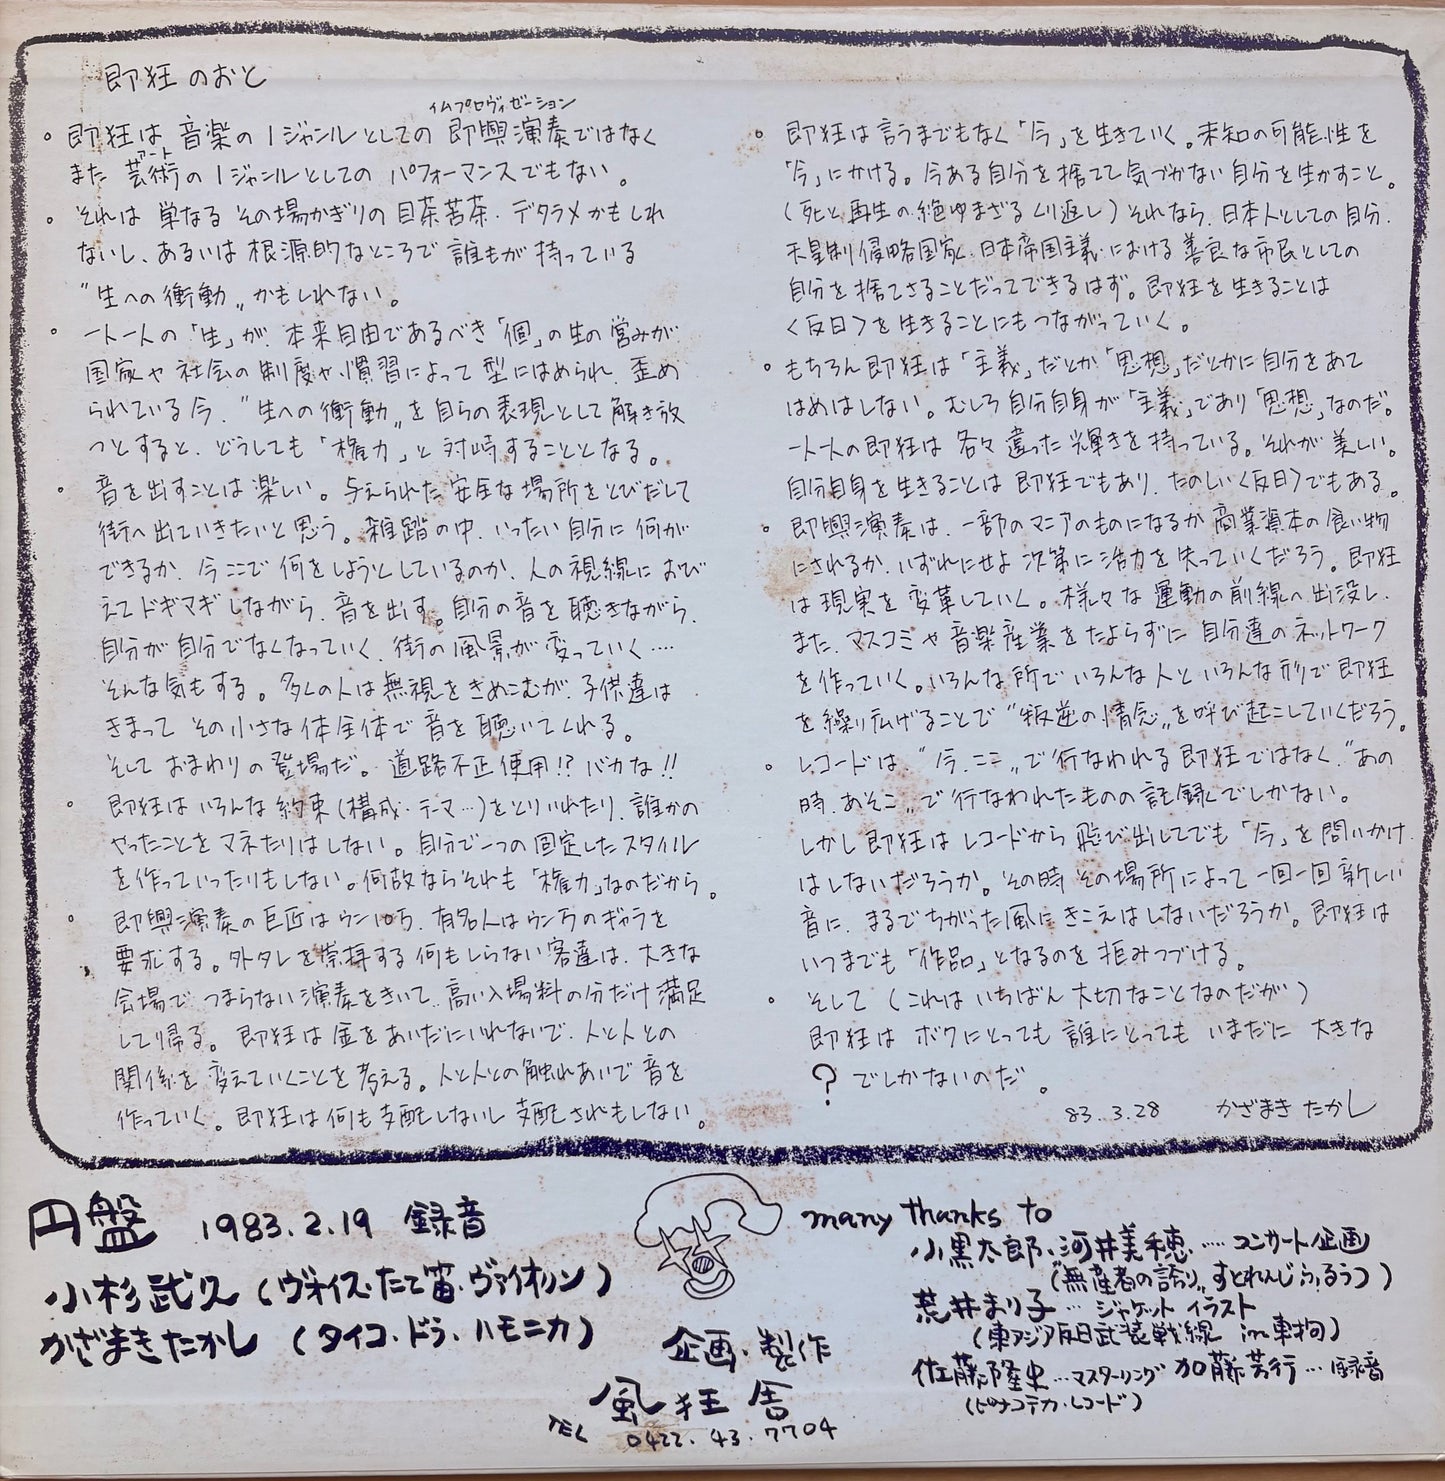 即狂のおと
イムプロヴィゼーション
。即狂は音楽の1ジャンルとしての即興演奏ではなく
アート
また芸術の1ジャンルとしてのパフォーマンスでもない。
。それは単なるその場かぎりの目茶苦茶・デクラメかもしれ
ないし、あるいは根源的なところで誰もが持っている
"生への衝動„かもしれない。
。一人一人の「生」が、本来自由であるべき「個」の生の営みが
国家や社会の制度や慣習によって型にはめられ、歪め
られている今、"生への衝動„を自らの表現として解き放
つとすると、どうしても「権力」と対峙することとなる。
。音を出すことは楽しい。与えられた安全な場所をとびだして
街へ出ていきたいと思う。雑踏の中、いったい自分に何が
できるか、今ここで何をしようとしているのか、人の視線におび
えてドギマギしながら、音を出す。自分の音を聴きながら、
自分が自分でなくなっていく、街の風景が変っていく‥‥
そんな気もする。多くの人は無視をきめこむが、子供達は
きまってその小さな体全体で音を聴いてくれる。
そしておまわりの登場だ。道路不正使用!? バカな!!
。即狂はいろんな約束(構成・テーマ…)をとりいれたり、誰かの
やったことをマネたりはしない。自分で一つの固定したスタイル
を作っていったりもしない。何故ならそれも「権力」なのだから。
。即興演奏の巨匠はウン10ち、有名人はウン万のギャラを
要求する。外タレを崇拝する何もしらない客達は、大きな
会場でつまらない演奏をきいて、高い入場料の分だけ満足
して帰る。即狂は金をあいだにいれないで、人と人との
関係を変えていくことを考える。人と人との触れあいで音を
作っていく。即狂は何も支配しないし支配されもしない。
。即狂は言うまでもなく「今」を生きていく。未知の可能性を
「今」にかける。今ある自分を捨てて気づかない自分を生かすこと。
(死と再生の絶ゆまざるくり返し)それなら、日本人としての自分、
天皇制侵略国家、日本帝国主義における善良な市民としての
自分を捨てさることだってできるはず。即狂を生きることは
〈反日〉を生きることにもつながっていく。
。もちろん即狂は「主義」だとか「思想」だとかに自分をあて
はめはしない。むしろ自分自身が「主義」であり「思想」なのだ。
一人一人の即狂は各々違った輝きを持っている。それが美しい。
自分自身を生きることは即狂でもあり、たのしい〈反日〉でもある。
。即興演奏は、一部のマニアのものになるか商業資本の食い物
にされるか、いずれにせよ次第に活力を失っていくだろう。即狂
は現実を変革していく。様々な運動の前線へ出没し、
また、マスコミや音楽産業をたよらずに自分達のネットワーク
を作っていく。いろんな所でいろんな人といろんな形で即狂
を繰り広げることで"叛逆の情念„を呼び起こしていくだろう。
。レコードは"今、ここ„で行なわれる即狂ではなく、"あの
時、あそこ„で行なわれたものの記録でしかない。
しかし即狂はレコードから飛び出してでも「今」を問いかけ
はしないだろうか。その時その場所によって一回一回新しい
音に、まるでちがった風にきこえはしないだろうか。即狂は
いつまでも「作品」となるのを拒みつづける。
。そして(これはいちばん大切なことなのだが)
即狂はボクにとっても誰にとってもいまだに大きな
?でしかないのだ。
83.3.28 かざまきたかし
円盤 1983.2.19 録音
小杉武久(ヴォイス・たて笛・ヴァイオリン)
かざまきたかし(タイコ・ドラ・ハモニカ)
企画・製作
風狂舎
TEL 0422.43.7704
many thanks to
小黒太郎・河井美穂‥‥コンサート企画
("無産者の誇り„すとれんじふるうつ)
荒井まり子…ジャケットイラスト
(東アジア反日武装戦線 in 東拘)
佐藤隆史…マスターリング 加藤芳行…録音
(ピナコテカ・レコード)